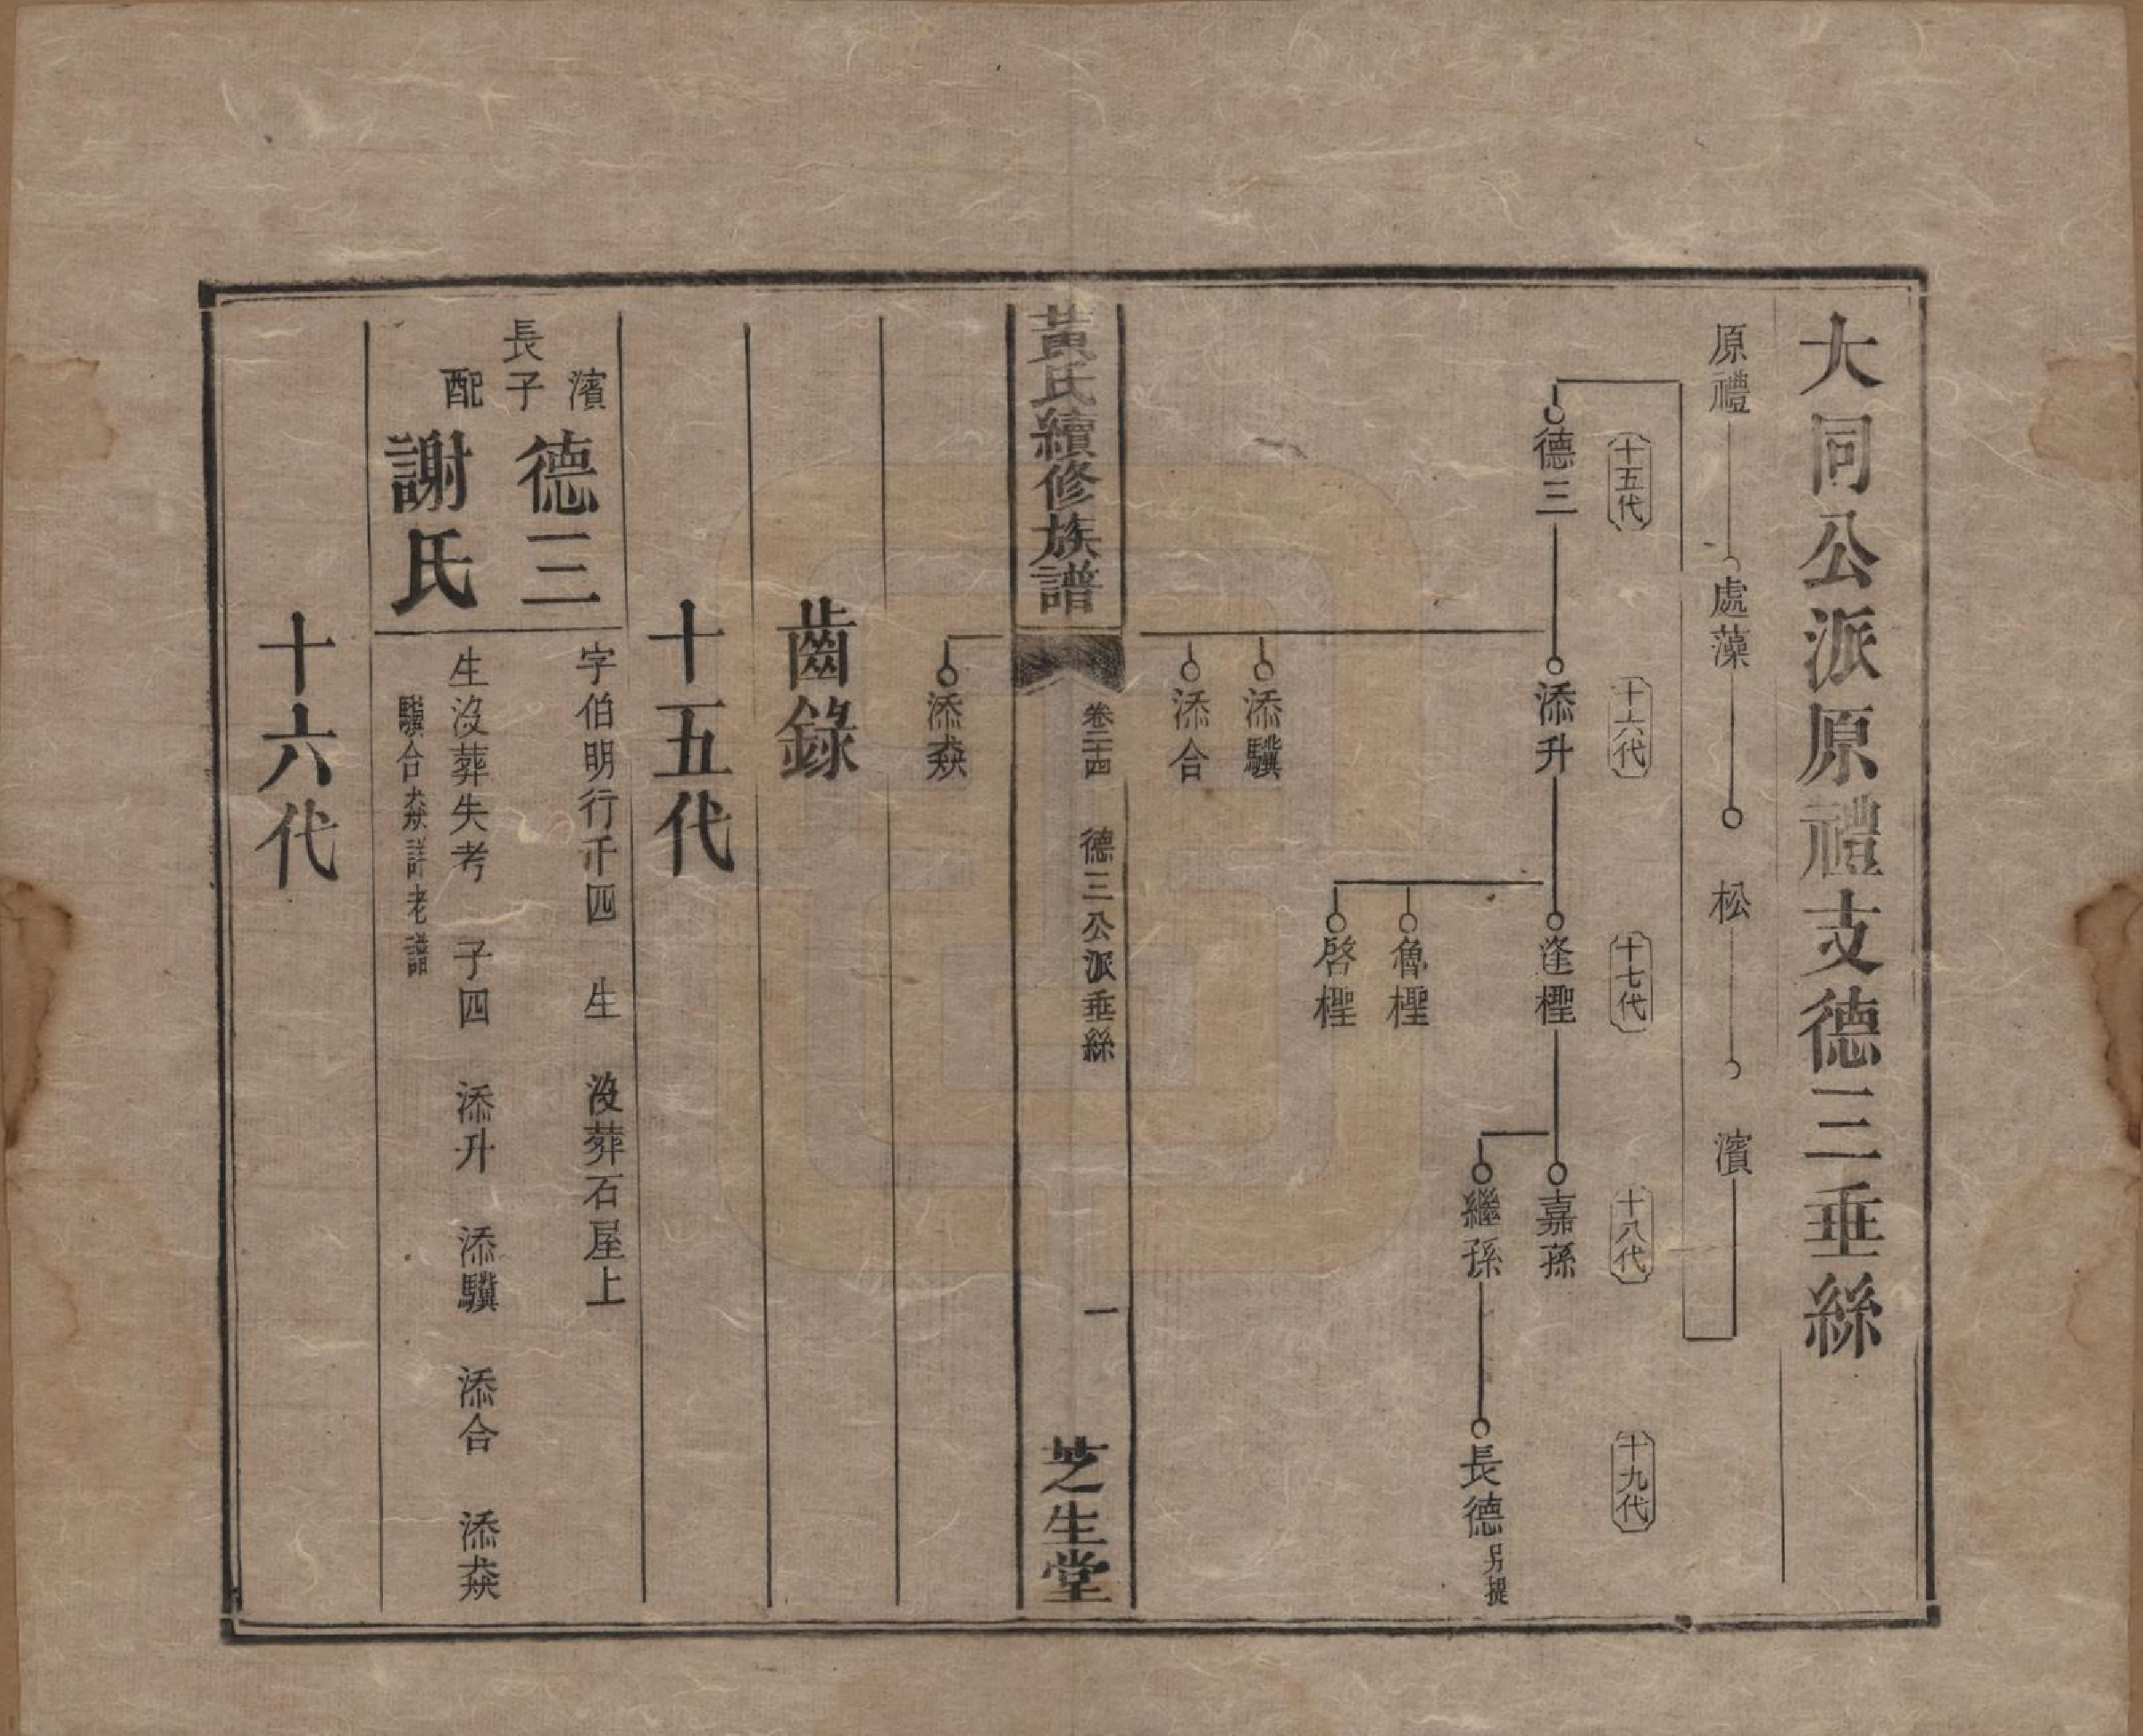 大同公派原禮支德三垂絲
原禮 處藻 松 濱
十五代 十六代 十七代 十八代 十九代
德三 添升 逢檉 嘉孫
繼孫 長德 另提
魯檉
啓檉
添驥
添合
黃氏續修族譜 卷二十四 德三公派垂絲 一 芝生堂
添猋
齒錄
十五代
濱長子 德三 字伯明行千四 生 沒葬石屋上
配 謝氏 生沒葬失考 子四 添升 添驥 添合 添猋
驥合猋詳老譜
十六代